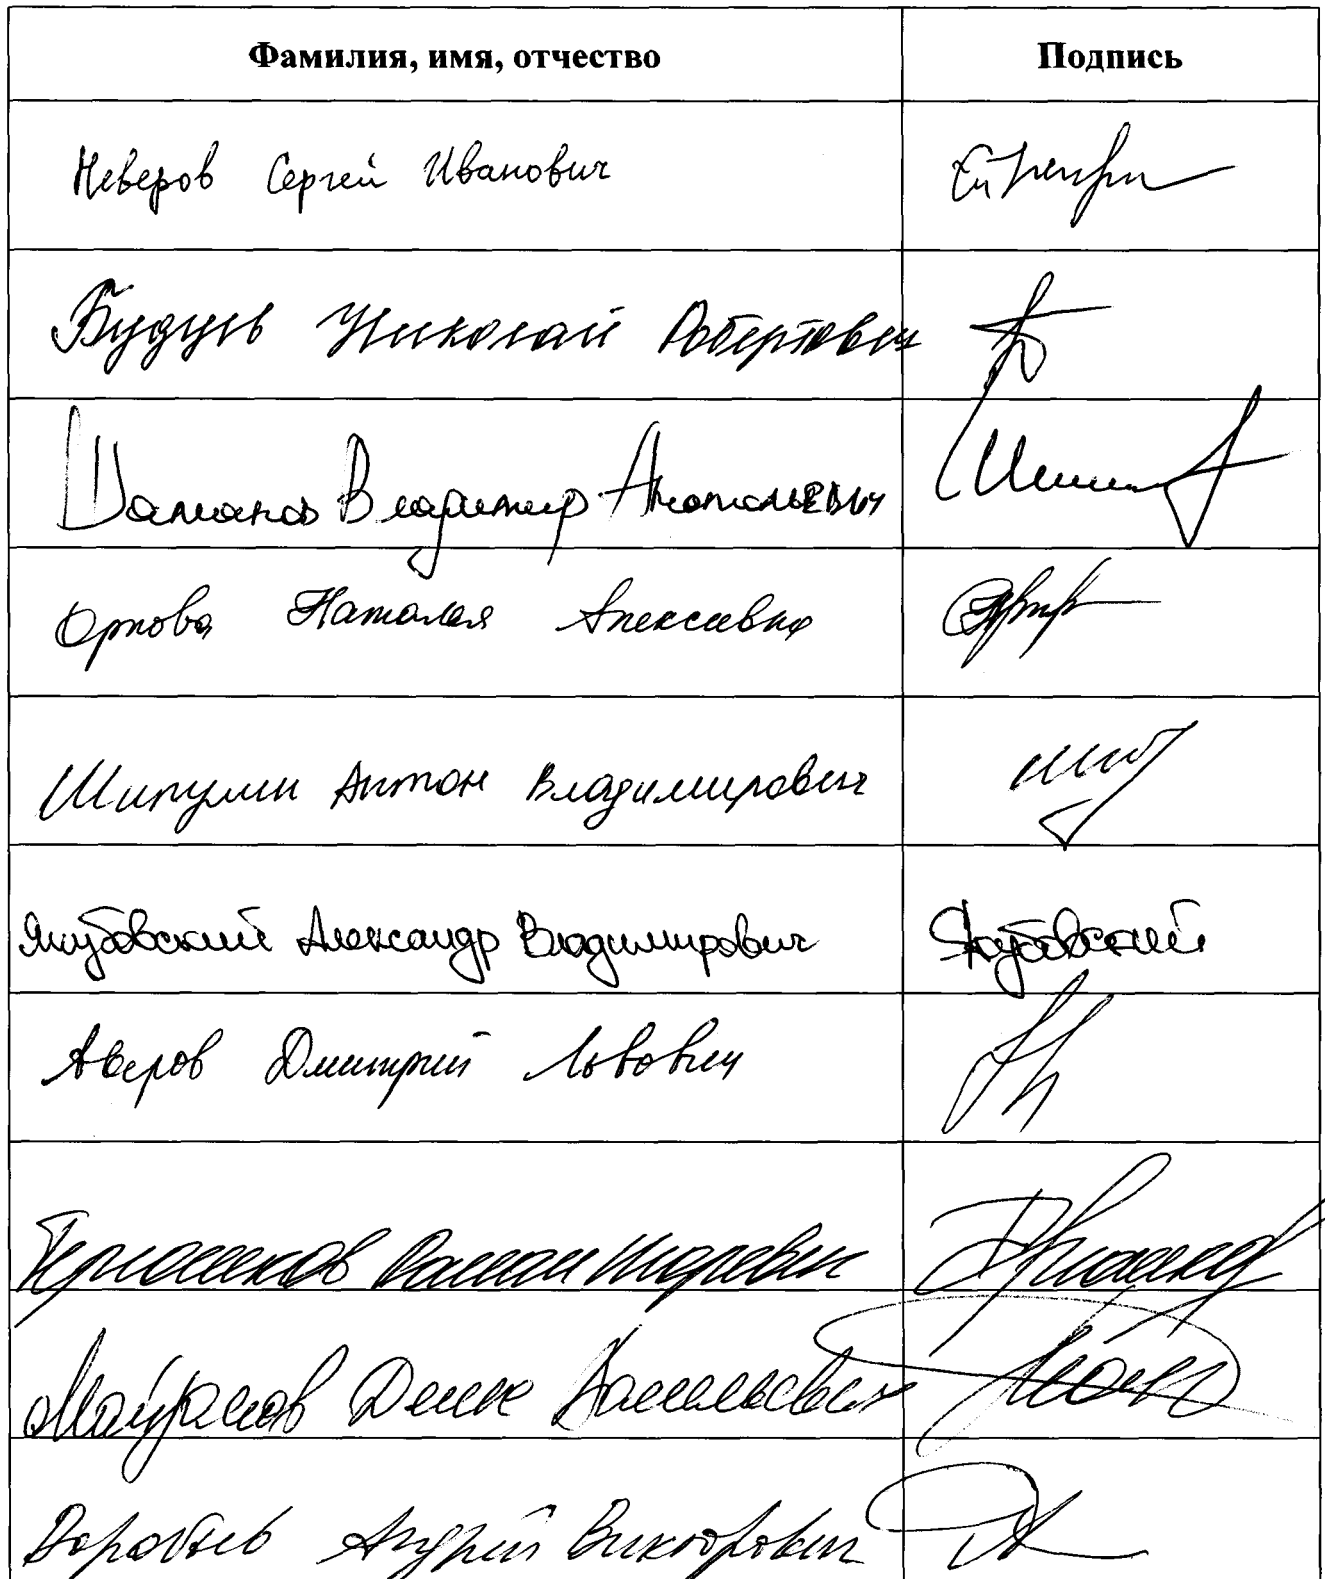 Фамилия, имя, отчество Подпись
Неверов Сергей Иванович
Будуев Николай Робертович
Шаманов Владимир Анатольевич
Орлова Наталия Алексеевна
Шипулин Антон Владимирович
Якубовский Александр Владимирович Якубовский
Аверов Дмитрий Львович
Терюшков Роман Игоревич
Майданов Денис Васильевич
Воробьев Андрей Викторович